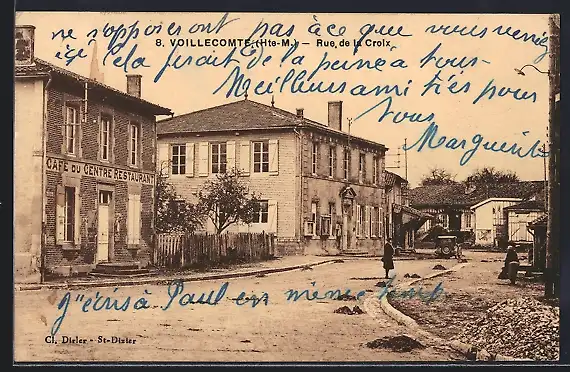 n's'opposeront pas à ce que vous veniez
8. VOILLECOMTE (Hte-M.) — Rue de la Croix
ici cela ferait de la peine à tous.
Meilleurs amitiés pour
vous
Marguerite
CAFÉ DU CENTRE RESTAURANT
j'écris à Paul en même temps
Cl. Dirler - St-Dizier